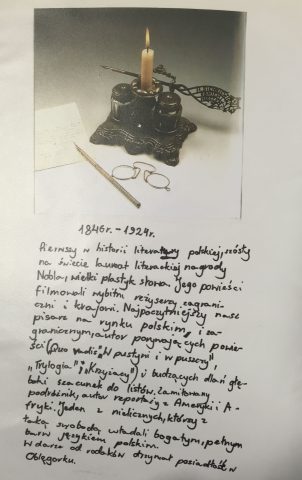 1846r. - 1924r.
Pierwszy w historii literatury polskiej, szósty
na świecie laureat literackiej nagrody
Nobla, wielki plastyk słowa. Jego powieści
filmowali wybitni reżyserzy zagrani-
czni i krajowi. Najpoczytniejszy nasz
pisarz na rynku polskim i za-
granicznym, autor porywających powie-
ści ("Quo vadis", "W pustyni i w puszczy",
"Trylogia", "Krzyżacy") i budzących dlań głę-
boki szacunek do listów, zamiłowany
podróżnik, autor reportaży z Ameryki i A-
fryki. Jeden z nielicznych, którzy z
taką swobodą władali bogatym, pełnym
barw językiem polskim.
W darze od rodaków otrzymał posiadłość w
Oblęgorku.